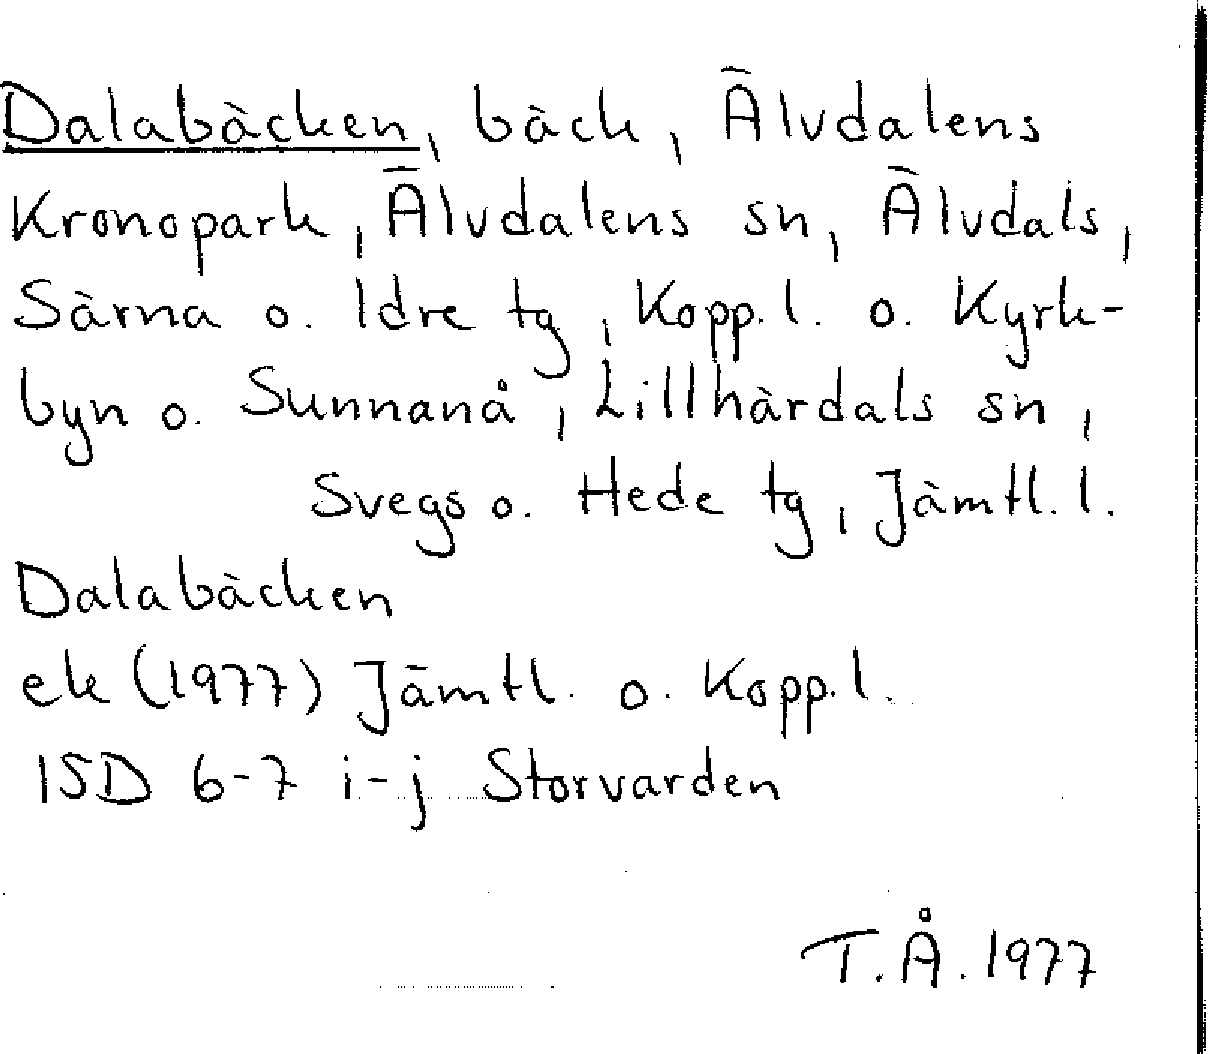 Dalabäcken, bäck, Älvdalens
Kronopark, Älvdalens sn, Älvdals,
Särna o. Idre tg, Kopp. l. o. Kyrk-
byn o. Sunnanå, Lillhärdals sn,
Svegs o. Hede tg, Jämtl. l.
Dalabäcken
ek (1977) Jämtl. o. Kopp. l.
15D 6-7 i-j Storvarden
T.Å. 1977